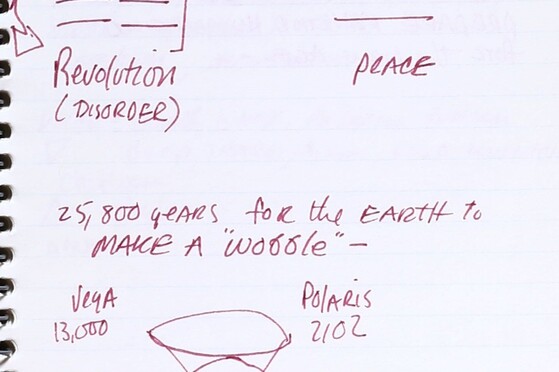 Revolution
PEACE
(DISORDER)
25,800 YEARS for the EARTH to
MAKE A "WOBBLE" —
VEGA
POLARIS
13,000
2102